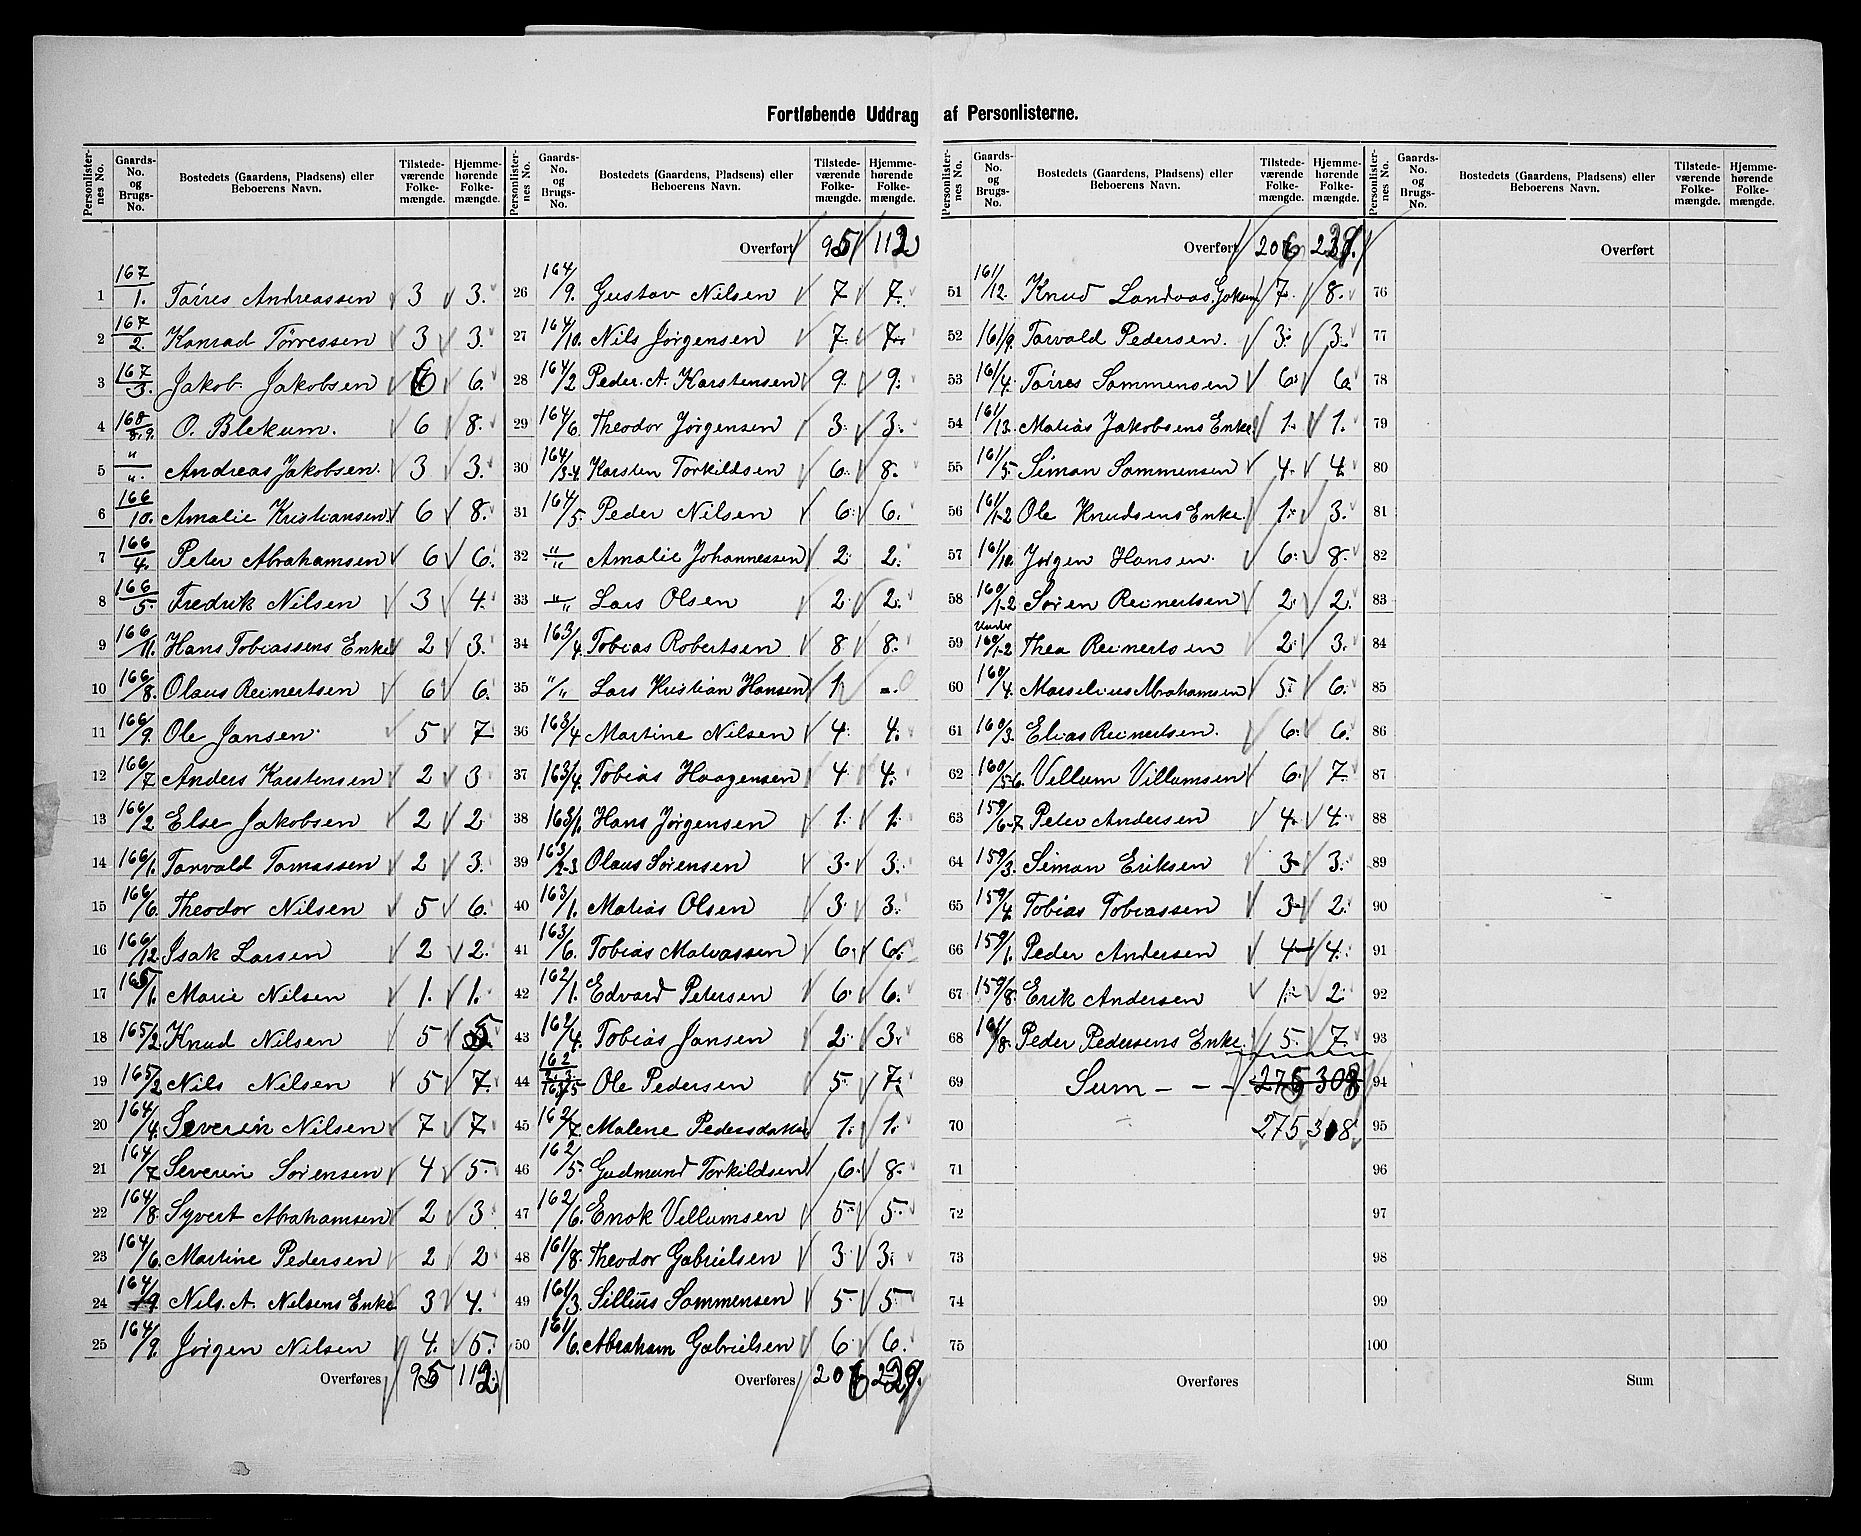 Fortløbende Uddrag af Personlisterne.
Personlister-nes No. Gaards-No. og Brugs-No. Bostedets (Gaardens, Pladsens) eller Beboerens Navn. Tilstede-værende Folke-mængde. Hjemme-hørende Folke-mængde.
1 167/1. Tørres Andreassen 3 3.
2 167/2. Konrad Tørressen 3 3.
3 167/3. Jakob Jakobsen 6 6.
4 168/8.9. O. Blekum. 6 8.
5 " / ". Andreas Jakobsen. 3 3.
6 166/10. Amalie Kristiansen 6 8.
7 166/4. Peter Abrahamsen 6 6.
8 166/5. Fredrik Nilsen 3 4.
9 166/11. Hans Tobiassens Enke 2 3.
10 166/8. Olaus Reinertsen 6 6.
11 166/9. Ole Jansen 5 7
12 166/7 Anders Karstensen 2 3
13 166/2 Else Jakobsen 2 2
14 166/1. Torvald Tomassen 2 3.
15 166/6. Theodor Nilsen 5 6.
16 166/12. Isak Larsen 2 2.
17 165/1. Marie Nilsen 1. 1.
18 165/2. Knud Nilsen 5 5
19 165/2 Nils Nilsen 5 7.
20 164/4. Severin Nilsen 7 7.
21 164/7 Severin Sørensen 4 5.
22 164/8. Syvert Abrahamsen 2 3.
23 164/6. Martine Pedersen 2 2
24 164/9. Nils. A. Nilsens Enke 3 4.
25 164/9. Jørgen Nilsen 4. 5.
Overføres 95 112
Personlister-nes No. Gaards-No. og Brugs-No. Bostedets (Gaardens, Pladsens) eller Beboerens Navn. Tilstede-værende Folke-mængde. Hjemme-hørende Folke-mængde.
Overført 95 112
26 164/9. Gustav Nilsen 7 7.
27 164/10. Nils Jørgensen 7 7.
28 164/2 Peder. A. Karstensen 9. 9.
29 164/6. Theodor Jørgensen 3. 3.
30 164/3-4 Karsten Torkildsen 6. 8.
31 164/5. Peder Nilsen 6. 6.
32 " / " Amalie Johannessen 2. 2.
33 " / " Lars Olsen 2. 2.
34 163/4. Tobias Robertsen 8 8.
35 " / " Lars Kristian Hansen 1 - 0
36 163/4 Martine Nilsen 4. 4.
37 163/4. Tobias Haagensen 4. 4.
38 163/1. Hans Jørgensen 1. 1.
39 163/2-3 Olaus Sørensen 3. 3.
40 163/1. Matias Olsen 3. 3.
41 163/6. Tobias Matiassen 6. 6.
42 162/1. Edvard Petersen 6. 6.
43 162/4. Tobias Jansen 2. 3.
44 162/2.3. 163/5 Ole Pedersen 5. 7.
45 162/7. Malene Pedersdatter 1. 1.
46 162/5. Gudmund Torkildsen 6. 8.
47 162/6. Enok Villumsen 5. 5.
48 161/8. Theodor Gabrielsen 3. 3.
49 161/3. Sillius Sommensen 5. 5
50 161/6. Abraham Gabrielsen 6. 6.
Overføres 206 229.
Personlister-nes No. Gaards-No. og Brugs-No. Bostedets (Gaardens, Pladsens) eller Beboerens Navn. Tilstede-værende Folke-mængde. Hjemme-hørende Folke-mængde.
Overført 206
51 161/12. Knud Landaas 7. 8.
52 161/9. Torvald Pedersen. 3. 3.
53 161/4. Tørres Sommensen 6. 6.
54 161/13. Matias Jakobsens Enke 1. 1.
55 161/5. Simon Sommensen 4. 4.
56 161/1-2 Ole Knudsens Enke. 1. 3.
57 161/10. Jørgen Hansen. 6. 8.
58 160/1-2 Søren Reinertsen 2. 2.
59 Under 160/1-2 Thea Reinertsen 2. 3.
60 160/4. Marselius Abrahamsen 5. 6.
61 160/3. Elias Reinertsen. 6. 6.
62 160/5-6. Villum Villumsen 6. 7.
63 159/6-7 Peter Andersen 4. 4.
64 159/3. Simon Eriksen 3. 3.
65 159/4. Tobias Tobiassen 3. 2.
66 159/1. Peder Andersen 4 4.
67 159/8. Erik Andersen 1. 2.
68 161/8. Peder Pedersens Enke. 5. 7.
69 Sum - - - 275 308
70 275 308
71
72
73
74
75
Overføres
Personlister-nes No. Gaards-No. og Brugs-No. Bostedets (Gaardens, Pladsens) eller Beboerens Navn. Tilstede-værende Folke-mængde. Hjemme-hørende Folke-mængde.
Overført
76
77
78
79
80
81
82
83
84
85
86
87
88
89
90
91
92
93
94
95
96
97
98
99
100
Sum